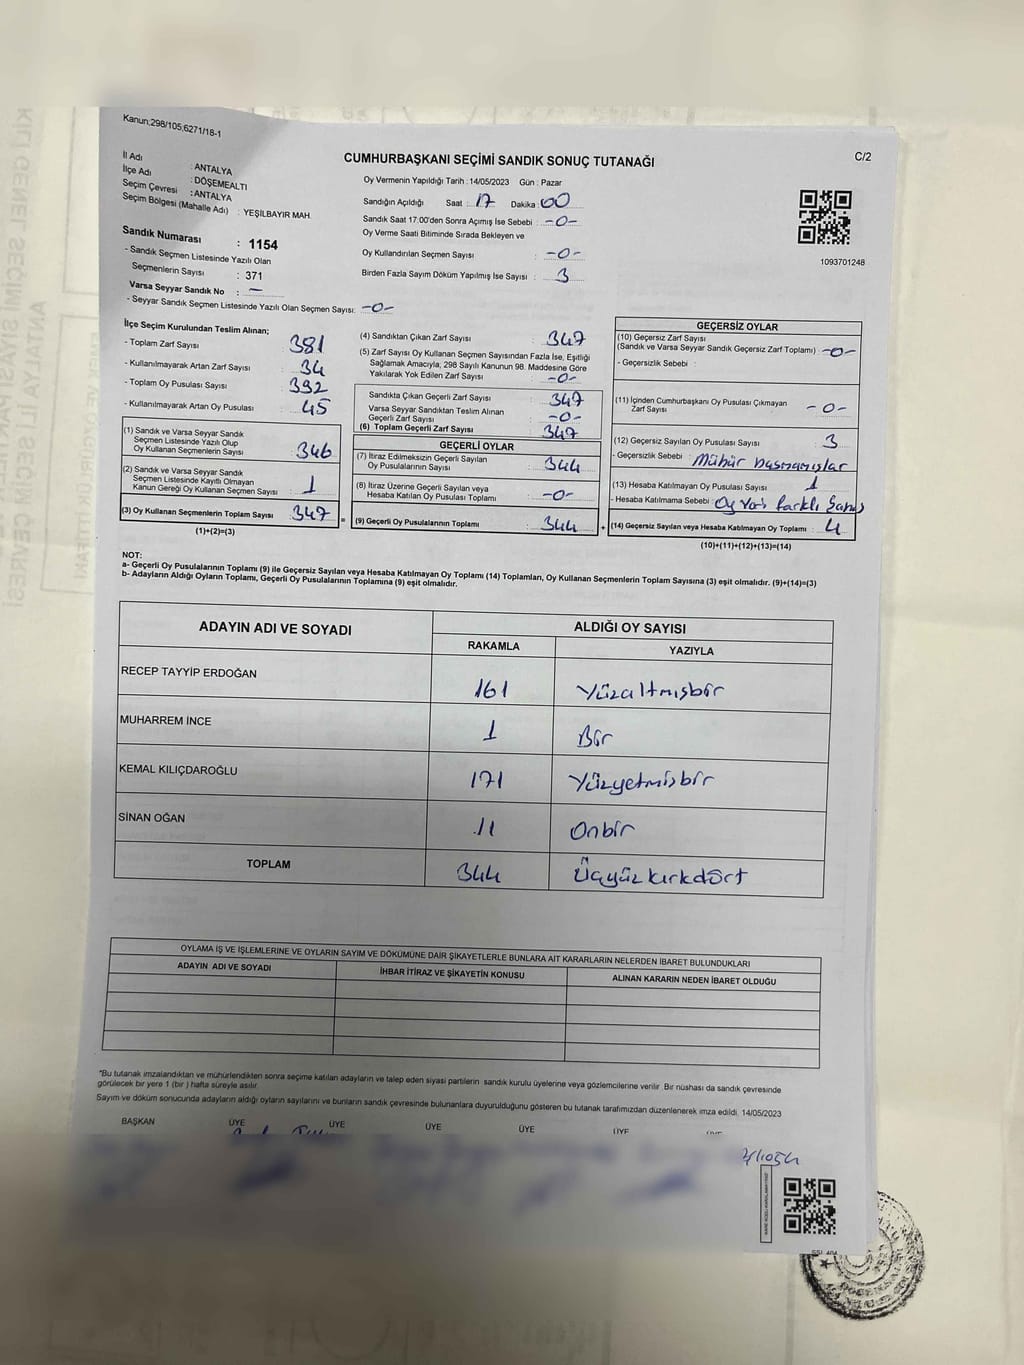 Kanun;298/105,6271/18-1
C/2
CUMHURBAŞKANI SEÇİMİ SANDIK SONUÇ TUTANAĞI
İl Adı : ANTALYA
İlçe Adı : DÖŞEMEALTI
Seçim Çevresi : ANTALYA
Seçim Bölgesi (Mahalle Adı) : YEŞİLBAYIR MAH.
Sandık Numarası : 1154
- Sandık Seçmen Listesinde Yazılı Olan
Seçmenlerin Sayısı : 371
Varsa Seyyar Sandık No : -
- Seyyar Sandık Seçmen Listesinde Yazılı Olan Seçmen Sayısı: -0-
Oy Vermenin Yapıldığı Tarih : 14/05/2023 Gün : Pazar
Sandığın Açıldığı Saat : 17 Dakika : 00
Sandık Saat 17:00'den Sonra Açımış İse Sebebi : -0-
Oy Verme Saati Bitiminde Sırada Bekleyen ve
Oy Kullandırılan Seçmen Sayısı : -0-
Birden Fazla Sayım Döküm Yapılmış İse Sayısı : 3
1093701248
İlçe Seçim Kurulundan Teslim Alınan;
- Toplam Zarf Sayısı : 381
- Kullanılmayarak Artan Zarf Sayısı : 34
- Toplam Oy Pusulası Sayısı : 392
- Kullanılmayarak Artan Oy Pusulası : 45
(1) Sandık ve Varsa Seyyar Sandık
Seçmen Listesinde Yazılı Olup
Oy Kullanan Seçmenlerin Sayısı : 346
(2) Sandık ve Varsa Seyyar Sandık
Seçmen Listesinde Kayıtlı Olmayan
Kanun Gereği Oy Kullanan Seçmen Sayısı : 1
(3) Oy Kullanan Seçmenlerin Toplam Sayısı : 347
(1)+(2)=(3)
(4) Sandıktan Çıkan Zarf Sayısı : 347
(5) Zarf Sayısı Oy Kullanan Seçmen Sayısından Fazla İse, Eşitliği
Sağlamak Amacıyla, 298 Sayılı Kanunun 98. Maddesine Göre
Yakılarak Yok Edilen Zarf Sayısı : -0-
Sandıkta Çıkan Geçerli Zarf Sayısı : 347
Varsa Seyyar Sandıktan Teslim Alınan
Geçerli Zarf Sayısı : -0-
(6) Toplam Geçerli Zarf Sayısı : 347
GEÇERLİ OYLAR
(7) İtiraz Edilmeksizin Geçerli Sayılan
Oy Pusulalarının Sayısı : 344
(8) İtiraz Üzerine Geçerli Sayılan veya
Hesaba Katılan Oy Pusulası Toplamı : -0-
= (9) Geçerli Oy Pusulalarının Toplamı : 344
GEÇERSİZ OYLAR
(10) Geçersiz Zarf Sayısı
(Sandık ve Varsa Seyyar Sandık Geçersiz Zarf Toplamı) : -0-
- Geçersizlik Sebebi :
(11) İçinden Cumhurbaşkanı Oy Pusulası Çıkmayan
Zarf Sayısı : -0-
(12) Geçersiz Sayılan Oy Pusulası Sayısı : 3
- Geçersizlik Sebebi : Mühür basmamışlar
(13) Hesaba Katılmayan Oy Pusulası Sayısı : 1
- Hesaba Katılmama Sebebi : Oy Farklı
+ (14) Geçersiz Sayılan veya Hesaba Katılmayan Oy Toplamı : 4
(10)+(11)+(12)+(13)=(14)
NOT:
a- Geçerli Oy Pusulalarının Toplamı (9) ile Geçersiz Sayılan veya Hesaba Katılmayan Oy Toplamı (14) Toplamları, Oy Kullanan Seçmenlerin Toplam Sayısına (3) eşit olmalıdır. (9)+(14)=(3)
b- Adayların Aldığı Oyların Toplamı, Geçerli Oy Pusulalarının Toplamına (9) eşit olmalıdır.
ADAYIN ADI VE SOYADI
ALDIĞI OY SAYISI
RAKAMLA YAZIYLA
RECEP TAYYİP ERDOĞAN 161 Yüzaltmışbir
MUHARREM İNCE 1 Bir
KEMAL KILIÇDAROĞLU 171 Yüzyetmişbir
SİNAN OĞAN 11 Onbir
TOPLAM 344 Üçyüzkırkdört
OYLAMA İŞ VE İŞLEMLERİNE VE OYLARIN SAYIM VE DÖKÜMÜNE DAİR ŞİKAYETLERLE BUNLARA AİT KARARLARIN NELERDEN İBARET BULUNDUKLARI
ADAYIN ADI VE SOYADI İHBAR İTİRAZ VE ŞİKAYETİN KONUSU ALINAN KARARIN NEDEN İBARET OLDUĞU
*Bu tutanak imzalandıktan ve mühürlendikten sonra seçime katılan adayların ve talep eden siyasi partilerin sandık kurulu üyelerine veya gözlemcilerine verilir. Bir nüshası da sandık çevresinde
görülecek bir yere 1 (bir ) hafta süreyle asılır.
Sayım ve döküm sonucunda adayların aldığı oyların sayılarını ve bunların sandık çevresinde bulunanlara duyurulduğunu gösteren bu tutanak tarafımızdan düzenlenerek imza edildi. 14/05/2023
BAŞKAN ÜYE ÜYE ÜYE ÜYE ÜYE ÜYE